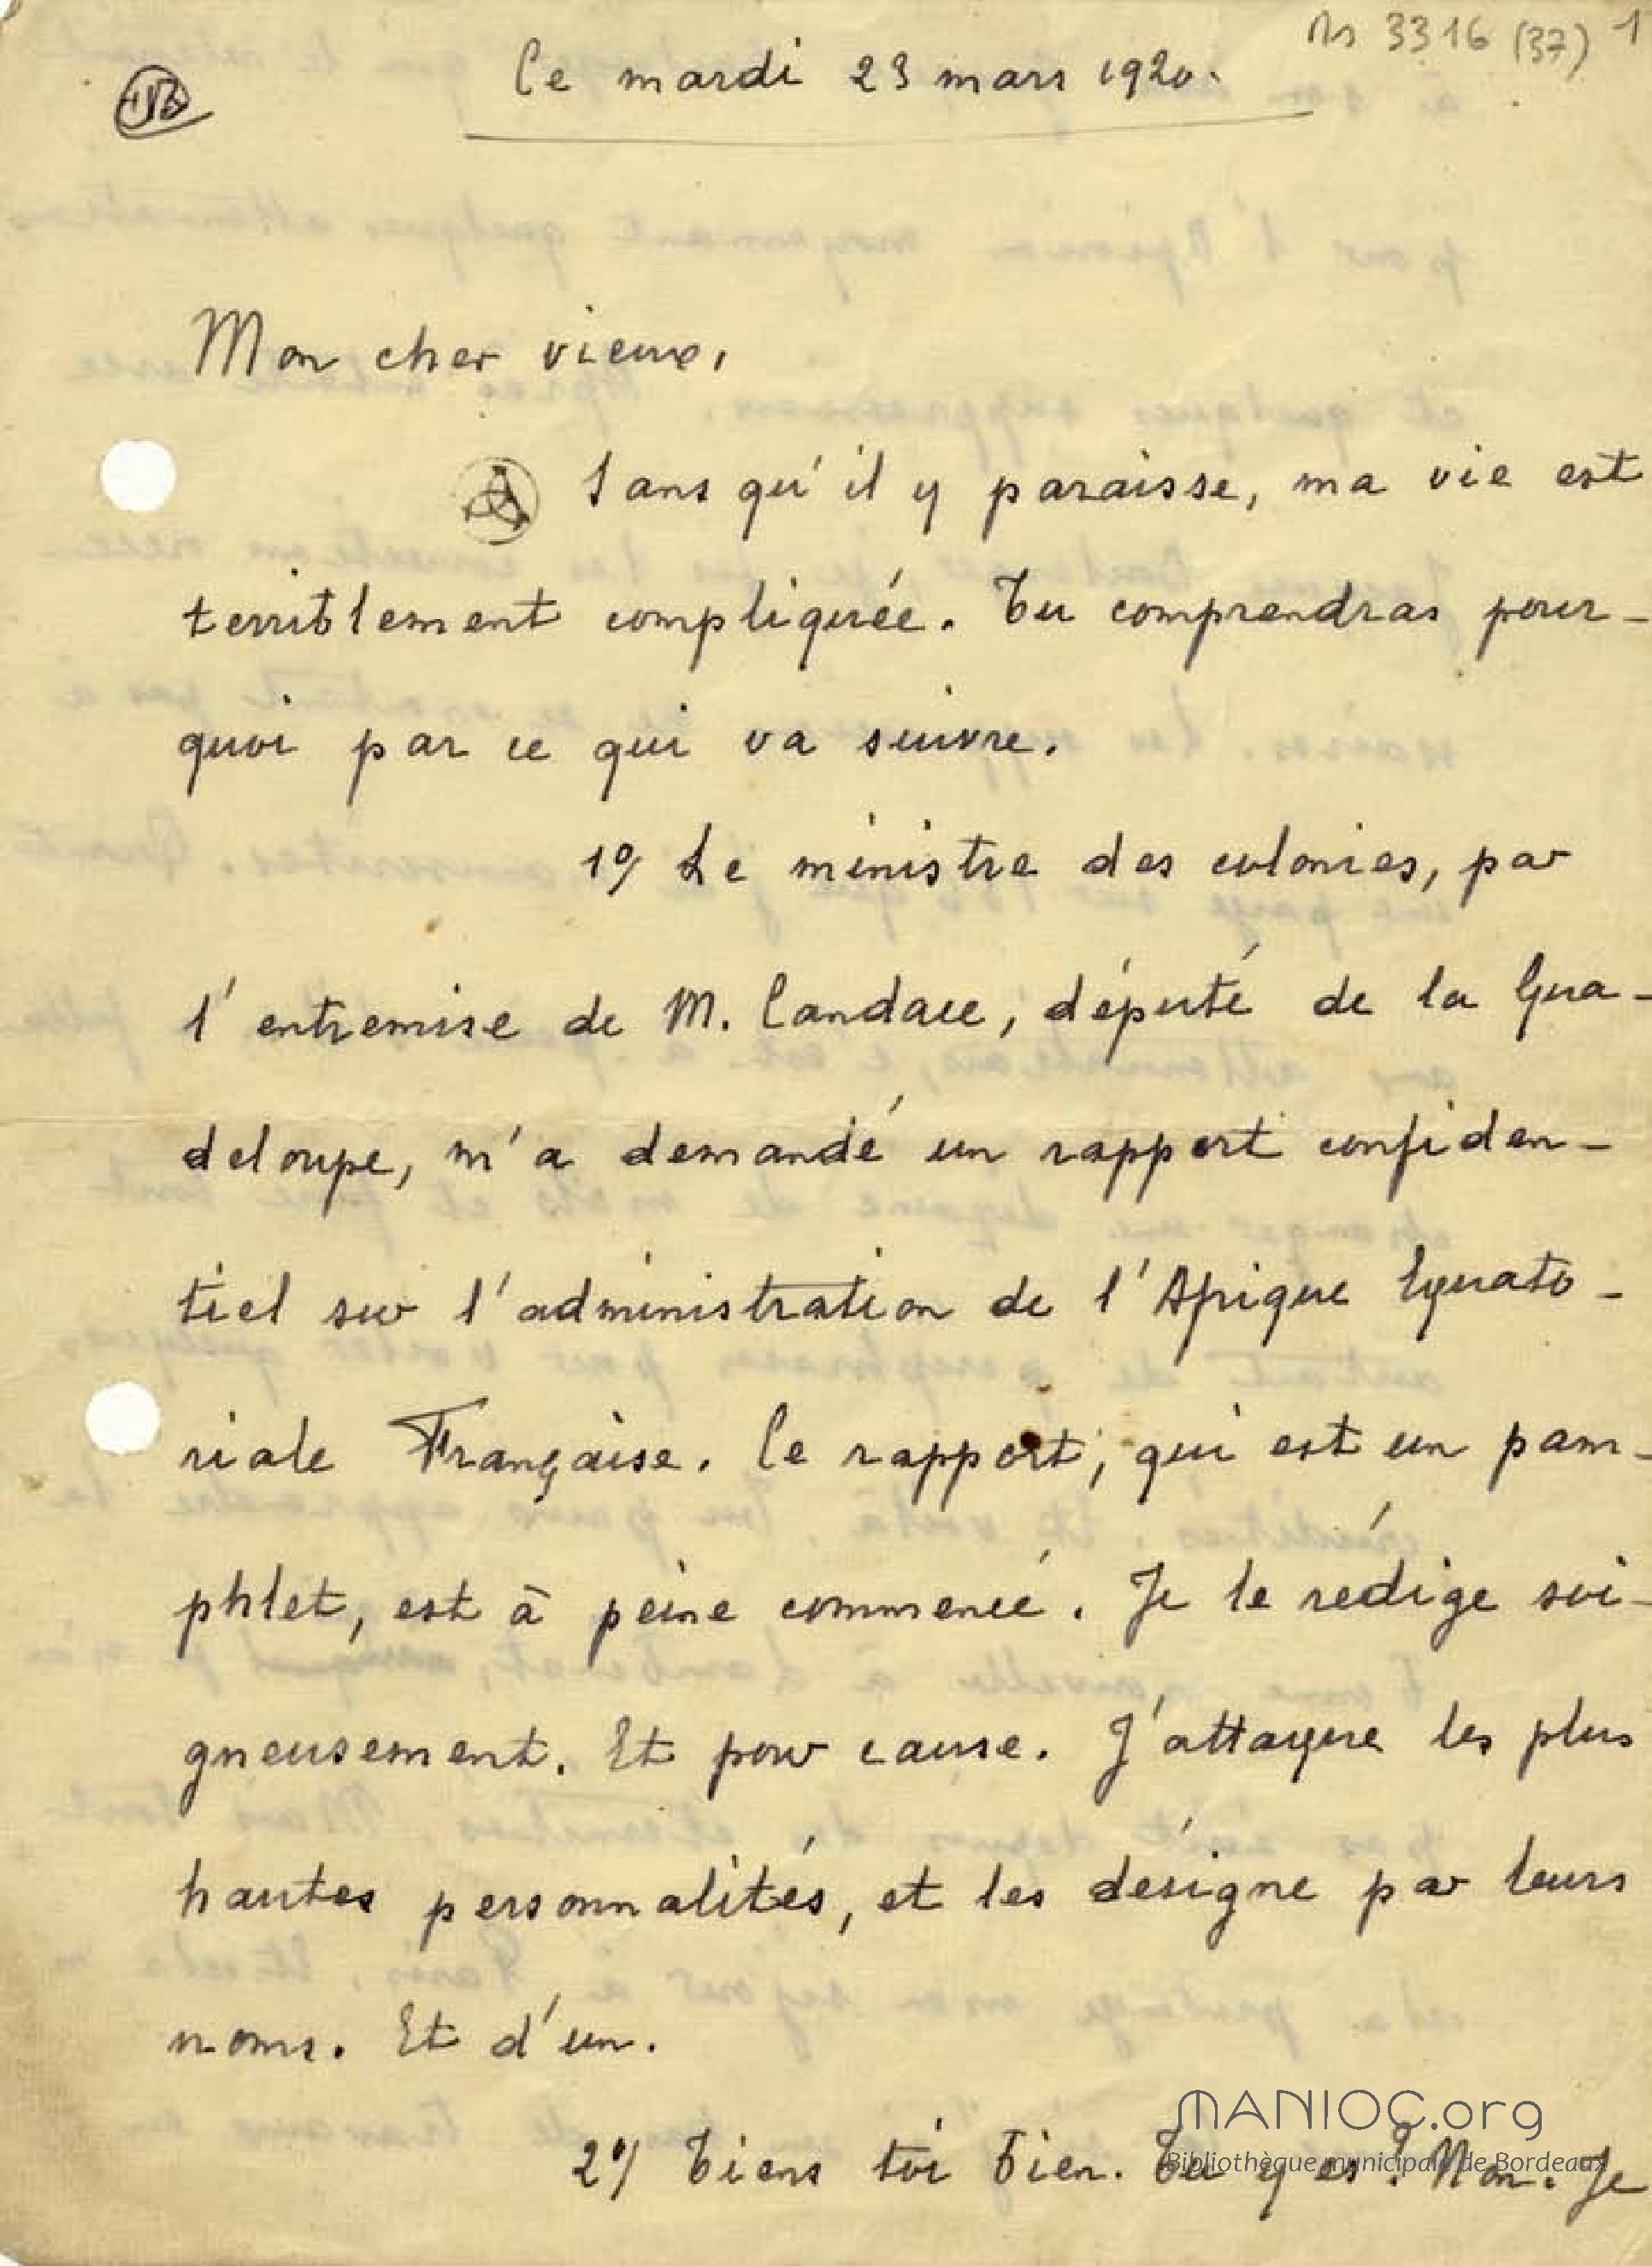 Ms 3316 (37) 1
Ce mardi 23 mars 1920.
Mon cher vieux,
Sans qu'il y paraisse, ma vie est
terriblement compliquée. Tu comprendras pour-
quoi par ce qui va suivre.
1°/ Le ministre des colonies, par
l'entremise de M. Candace, député de la Gua-
deloupe, m'a demandé un rapport confiden-
tiel sur l'administration de l'Afrique Equato-
riale Française. Ce rapport, qui est un pam-
phlet, est à peine commencé. Je le rédige soi-
gneusement. Et pour cause. J'attaque les plus
hautes personnalités, et les désigne par leurs
noms. Et d'un.
2°/ Tiens toi bien. Tu y es ? Non. Je
MANIOC.org
Bibliothèque municipale de Bordeaux